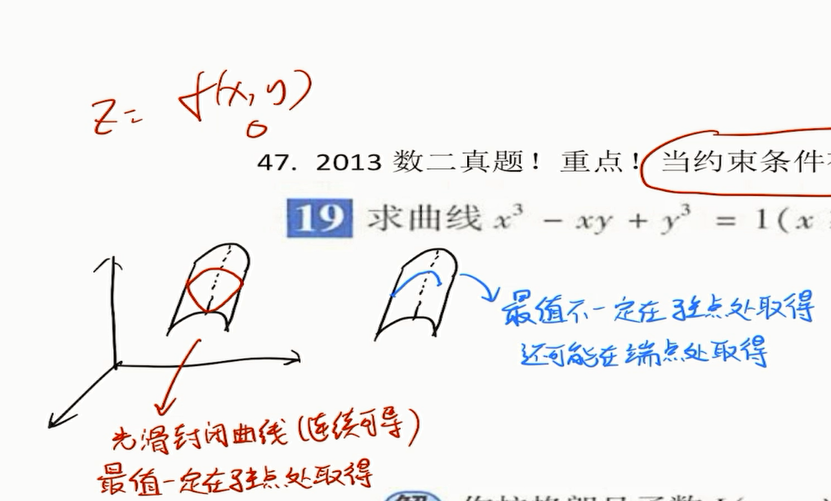 z = f(x,y)
47. 2013 数二真题！重点！当约束条件
19 求曲线 x³ − xy + y³ = 1(x
最值不一定在驻点处取得
还可能在端点处取得
光滑封闭曲线(连续可导)
最值一定在驻点处取得
解